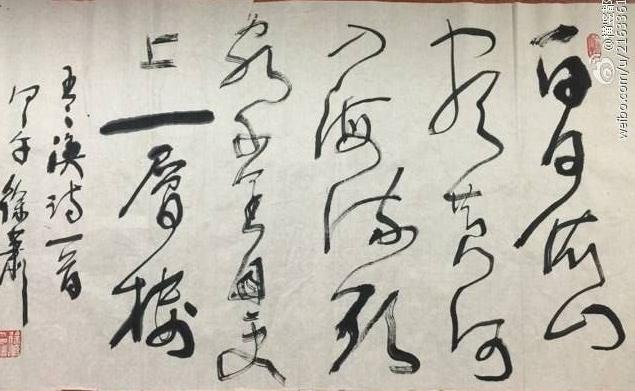 白日依山
盡黄河
入海流欲
窮千里目更
上一層樓
王之涣诗一首
甲午徐
weibo.com/u/2163361